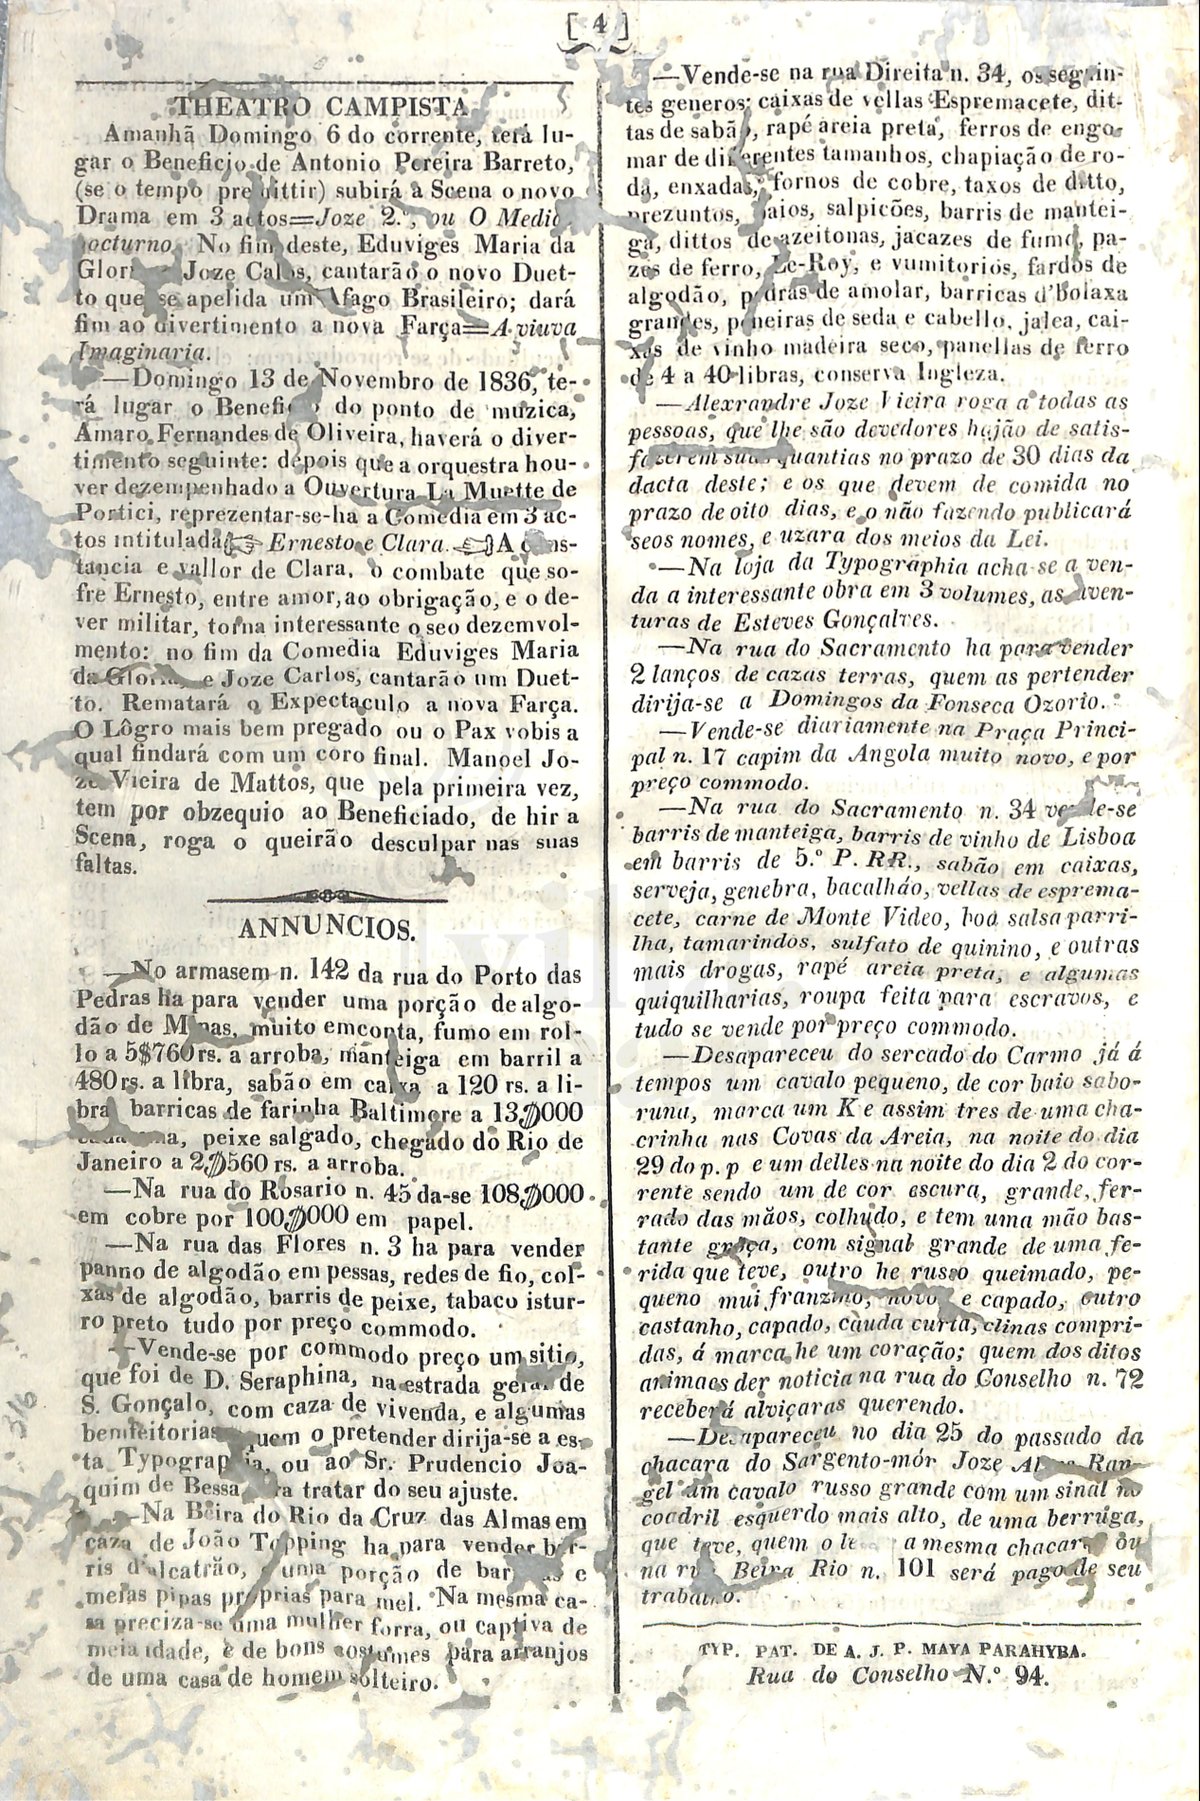 [ 4 ]
THEATRO CAMPISTA
Amanhã Domingo 6 do corrente, terá lu-
gar o Beneficio de Antonio Pereira Barreto,
(se o tempo premittir) subirá á Scena o novo
Drama em 3 actos=Joze 2.º, ou O Medico
nocturno. No fim deste, Eduviges Maria da
Joze Calos, cantarão o novo Duet-
to que se apelida um Afago Brasileiro; dará
fim ao divertimento a nova Farça=A viuva
Imaginaria.
—Domingo 13 de Novembro de 1836, te-
rá lugar o Beneficio do ponto de muzica,
Amaro Fernandes de Oliveira, haverá o diver-
timento seguinte: depois que a orquestra hou-
ver dezempenhado a Ouvertura La Muette de
Portici, reprezentar-se-ha a Comedia em 3 ac-
tos intitulada ☞ Ernesto e Clara. ☜ A cons-
tancia e vallor de Clara, o combate que so-
fre Ernesto, entre amor, ao obrigação, e o de-
ver militar, torna interessante o seo dezemvol-
mento: no fim da Comedia Eduviges Maria
da Gloria, e Joze Carlos, cantarão um Duet-
to. Rematará o Expectaculo a nova Farça.
O Lôgro mais bem pregado ou o Pax vobis a
qual findará com um coro final. Manoel Jo-
ze Vieira de Mattos, que pela primeira vez,
tem por obzequio ao Beneficiado, de hir a
Scena, roga o queirão desculpar nas suas
faltas.
ANNUNCIOS.
—No armasem n. 142 da rua do Porto das
Pedras ha para vender uma porção de algo-
dão de Minas, muito em conta, fumo em rol-
lo a 5$760 rs. a arroba, manteiga em barril a
480 rs. a libra, sabão em caixa a 120 rs. a li-
bra barricas de farinha Baltimore a 13$000
cada uma, peixe salgado, chegado do Rio de
Janeiro a 2$560 rs. a arroba.
—Na rua do Rosario n. 45 da-se 108$000
em cobre por 100$000 em papel.
—Na rua das Flores n. 3 ha para vender
panno de algodão em pessas, redes de fio, col-
xas de algodão, barris de peixe, tabaco istur-
ro preto tudo por preço commodo.
—Vende-se por commodo preço um sitio,
que foi de D. Seraphina, na estrada geral de
S. Gonçalo, com caza de vivenda, e algumas
bemfeitorias quem o pretender dirija-se a es-
ta Typographia, ou ao Sr. Prudencio Joa-
quim de Bessa tratar do seu ajuste.
—Na Beira do Rio da Cruz das Almas em
caza de João Topping ha para vender bar-
ris d'alcatrão, e uma porção de barricas e
meias pipas proprias para mel. Na mesma ca-
sa preciza-se uma mulher forra, ou captiva de
meia idade, e de bons costumes para arranjos
de uma casa de homem solteiro.
—Vende-se na rua Direita n. 34, os seguin-
tes generos: caixas de vellas Espremacete, dit-
tas de sabão, rapé areia preta, ferros de engo-
mar de diferentes tamanhos, chapiação de ro-
da, enxadas, fornos de cobre, taxos de ditto,
prezuntos, paios, salpicões, barris de mantei-
ga, dittos de azeitonas, jacazes de fumo, pa-
zes de ferro, Le-Roy, e vumitorios, fardos de
algodão, pedras de amolar, barricas d'bolaxa
grandes, peneiras de seda e cabello, jalea, cai-
xas de vinho madeira seco, panellas de ferro
de 4 a 40 libras, conserva Ingleza.
—Alexrandre Joze Vieira roga a todas as
pessoas, que lhe são devedores hajão de satis-
fazerem suas quantias no prazo de 30 dias da
dacta deste; e os que devem de comida no
prazo de oito dias, e o não fazendo publicará
seos nomes, e uzara dos meios da Lei.
—Na loja da Typographia acha-se a ven-
da a interessante obra em 3 volumes, as aven-
turas de Esteves Gonçalves.
—Na rua do Sacramento ha para vender
2 lanços de cazas terras, quem as pertender
dirija-se a Domingos da Fonseca Ozorio.
—Vende-se diariamente na Praça Princi-
pal n. 17 capim da Angola muito novo, e por
preço commodo.
—Na rua do Sacramento n. 34 vende-se
barris de manteiga, barris de vinho de Lisboa
em barris de 5.º P. RR., sabão em caixas,
serveja, genebra, bacalháo, vellas de esprema-
cete, carne de Monte Video, boa salsa parri-
lha, tamarindos, sulfato de quinino, e outras
mais drogas, rapé areia preta, e algumas
quiquilharias, roupa feita para escravos, e
tudo se vende por preço commodo.
—Desapareceu do sercado do Carmo já á
tempos um cavalo pequeno, de cor baio sabo-
runa, marca um K e assim tres de uma cha-
crinha nas Covas da Areia, na noite do dia
29 do p. p e um delles na noite do dia 2 do cor-
rente sendo um de cor escura, grande, fer-
rado das mãos, colhudo, e tem uma mão bas-
tante groça, com signal grande de uma fe-
rida que teve, outro he russo queimado, pe-
queno mui franzino, novo, e capado, outro
castanho, capado, cauda curta, clinas compri-
das, á marca he um coração; quem dos ditos
animaes der noticia na rua do Conselho n. 72
receberá alviçaras querendo.
—Desapareceu no dia 25 do passado da
chacara do Sargento-mór Joze Alves Ran-
gel um cavalo russo grande com um sinal no
coadril esquerdo mais alto, de uma berruga,
que teve, quem o a mesma chacara ou
na rua Beira Rio n. 101 será pago de seu
trabalho.
TYP. PAT. DE A. J. P. MAYA PARAHYBA.
Rua do Conselho N.º 94.